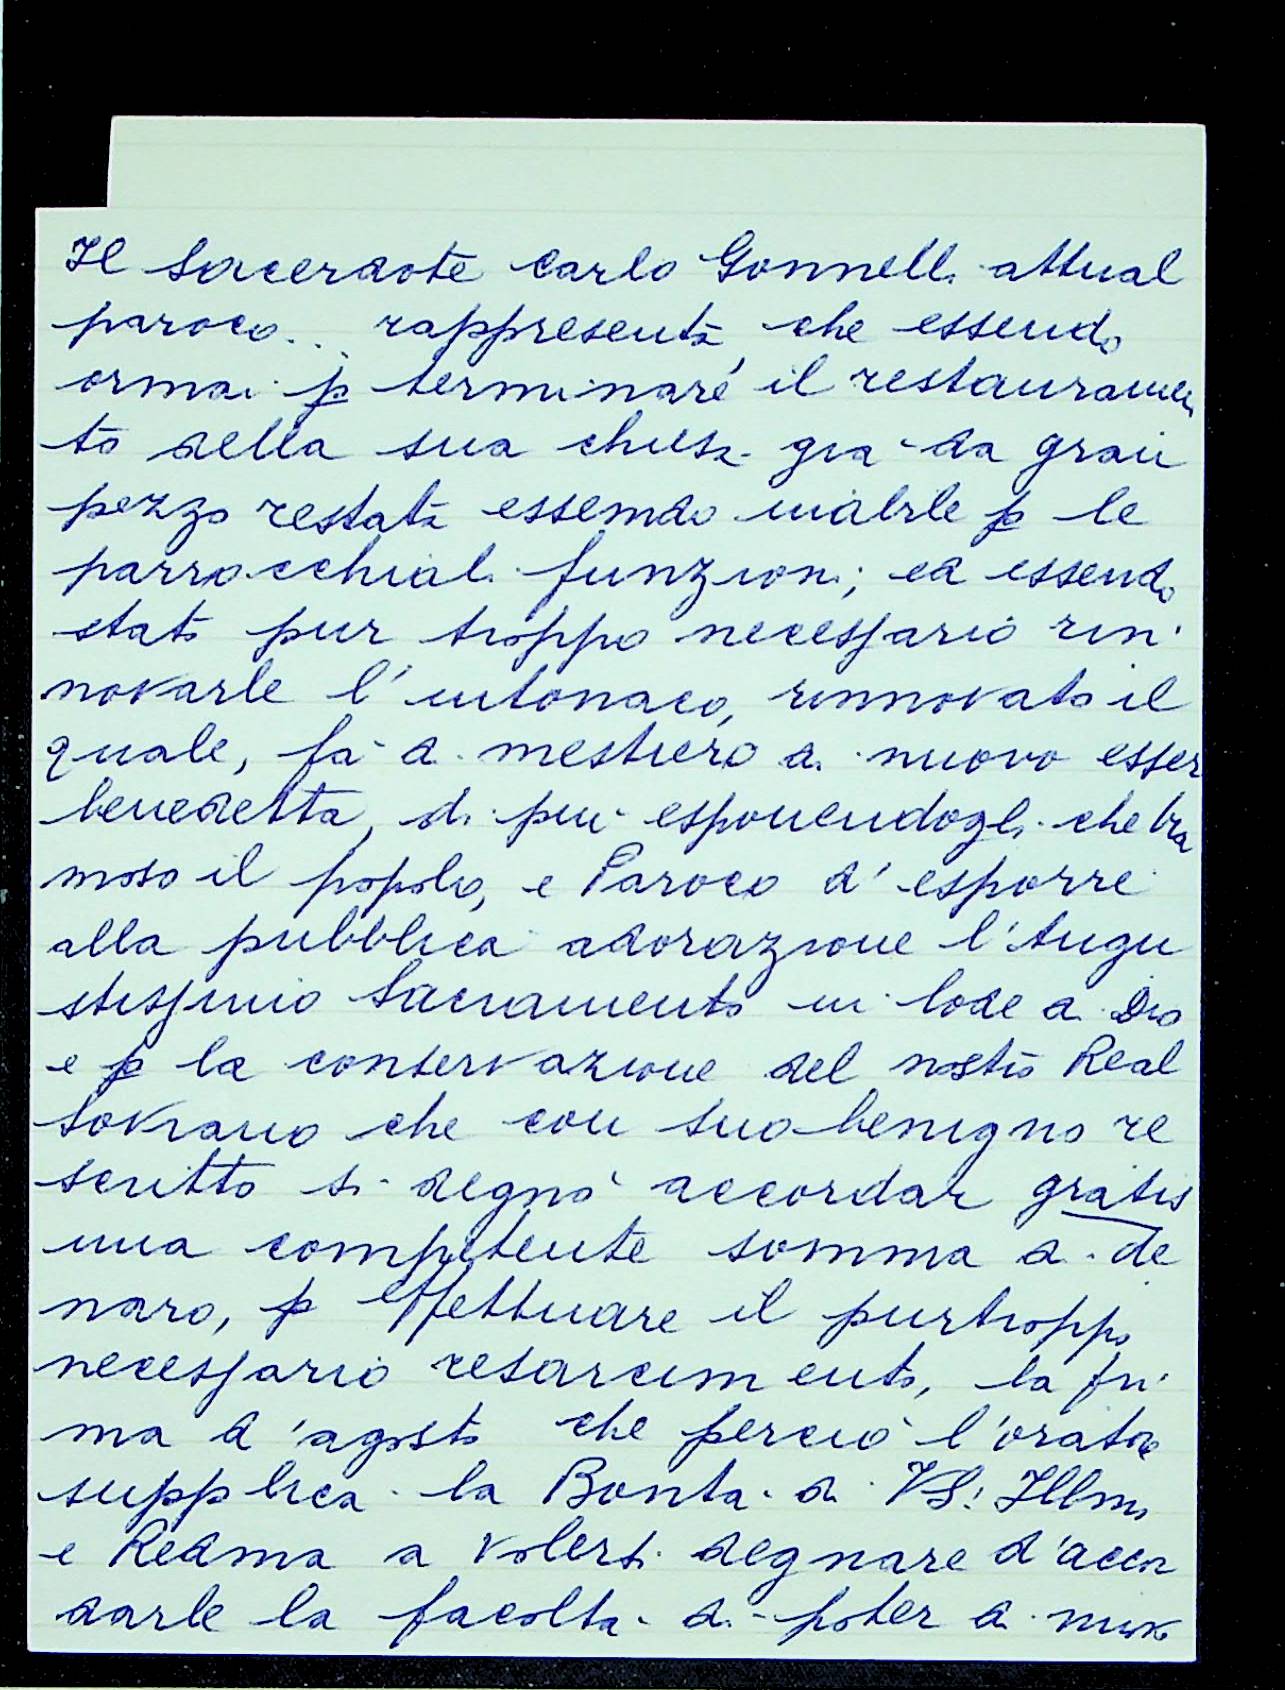 Il Sacerdote Carlo Gonnelli attual
paroco... rappresenta che essendo
ormai p terminare il restauramen
to della sua chiesa già da gran
pezzo restata essendo inabile p le
parrocchiali funzioni; ed essendo
stato pur troppo necessario rin
novarle l'intonaco, rinnovato il
quale, fa di mestiero di nuovo esser
benedetta, di più esponendogli che bra
moso il popolo, e Paroco d'esporre
alla pubblica adorazione l'Augu
stissimo Sacramento in lode a Dio
e p la conservazione del nostro Real
Sovrano che con suo benigno re
scritto si degnò accordar gratis
una competente somma di de
naro, p effettuare il purtroppo
necessario resarcimento, la pri
ma d'agosto che perciò l'orator
supplica la Bontà di VS: Illma
e Redma a volersi degnare d'accor
darle la facoltà di poter di nuovo